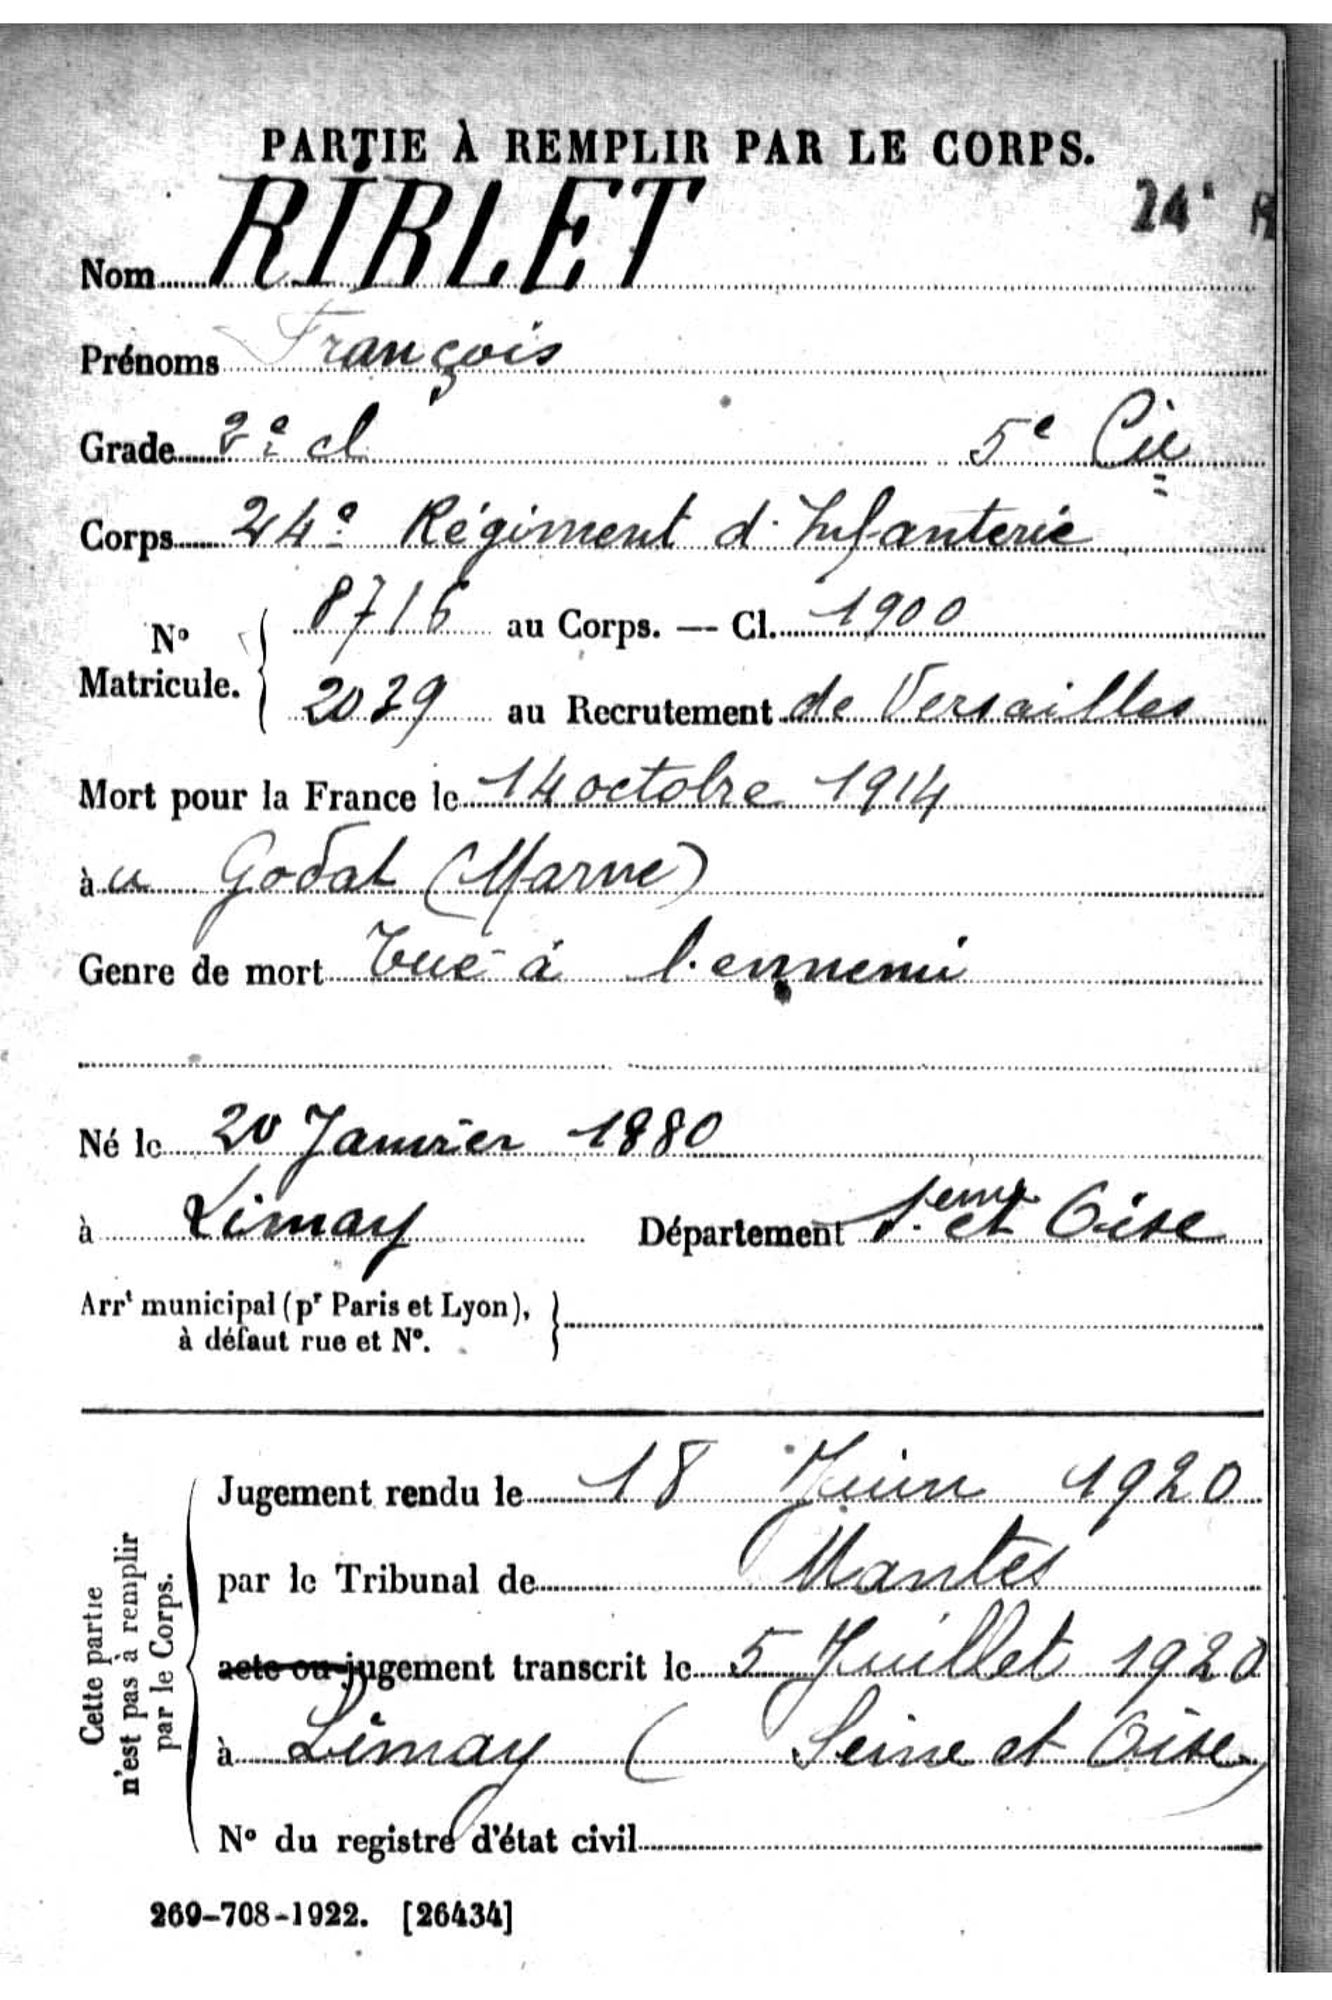 PARTIE À REMPLIR PAR LE CORPS.
24e R
Nom RIBLET
Prénoms François
Grade 2e cl 5e Cie
Corps 24e Régiment d'Infanterie
No Matricule. 8716 au Corps. — Cl. 1900
2039 au Recrutement de Versailles
Mort pour la France le 14 octobre 1914
à u Godat (Marne)
Genre de mort Tué à l'ennemi
Né le 20 Janvier 1880
à Limay Département Seine et Oise
Arrt municipal (pr Paris et Lyon),
à défaut rue et No.
Cette partie
n'est pas à remplir
par le Corps.
Jugement rendu le 18 Juin 1920
par le Tribunal de Mantes
acte ou jugement transcrit le 5 Juillet 1920
à Limay (Seine et Oise)
No du registre d'état civil
269-708-1922. [26434]